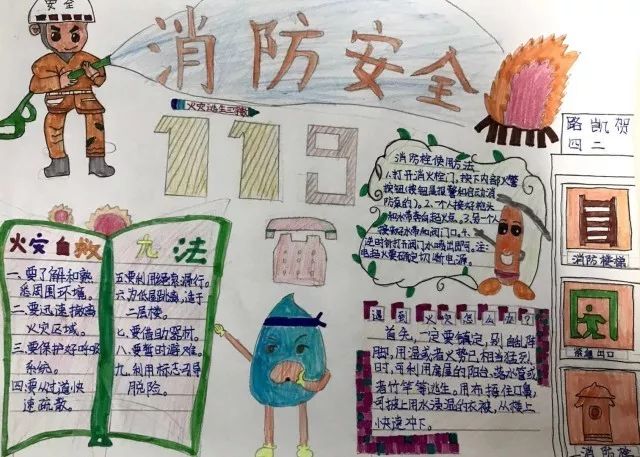 安全
消防安全
火灾逃生
119
路凯贺
四二
消防栓使用方法
1.打开消火栓门,按下内部火警
按钮(按钮是报警和启动消
防泵的)。2.一个人接好枪头
和水带奔向起火点。3.另一个人
接好水带和阀门口。4.
逆时针打开阀门水喷出即可。注:
电起火要确定切断电源。
火灾自救九法
一、要了解和熟
悉周围环境。
二、要迅速撤离
火灾区域。
三、要保护好呼吸
系统。
四、要从过道快
速疏散。
五、要利用绳索滑行。
六、为低层跳离,适于
二层楼。
七、要借助器材。
八、要暂时避难。
九、利用标志引导
脱险。
遇到火灾怎么应
首先,一定要镇定,别自乱阵
脚,用湿或者火势已相当猛烈
时,可利用房屋的阳台、落水管或
者竹竿等逃生。用布捂住口鼻,
可披上用水浸湿的衣被,从楼上
快速冲下。
消防楼梯